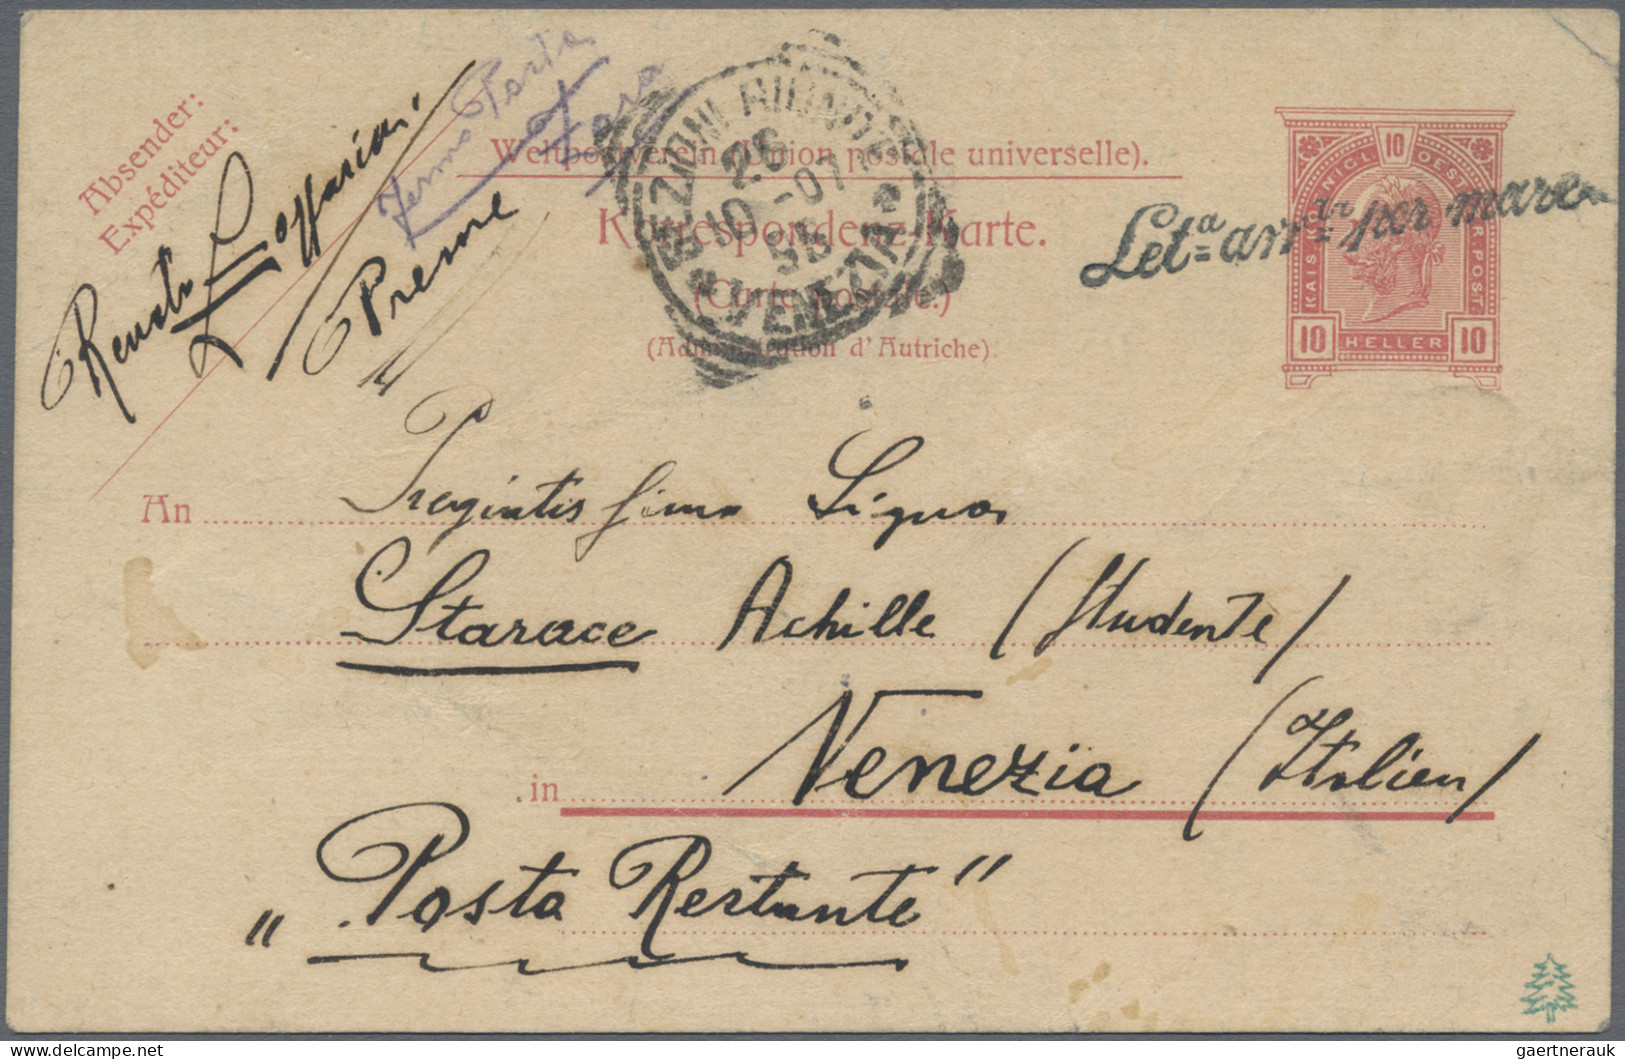 Absender:
Expéditeur:
Renato
Fermo Posta
Zara
Weltpostverein (Union postale universelle).
Korrespondenz-Karte.
(Carte postale.)
(Administration d'Autriche).
SEZIONI RIUNITE
26
10 -07
VENEZIA
Letª arrᵗᵃ per mare
KAIS. KÖNIGL. 10 OESTERR. POST
10 HELLER 10
An
Signor
Starace Achille (Studente)
in Venezia (Italien)
„Posta Restante"
gaertnerauk